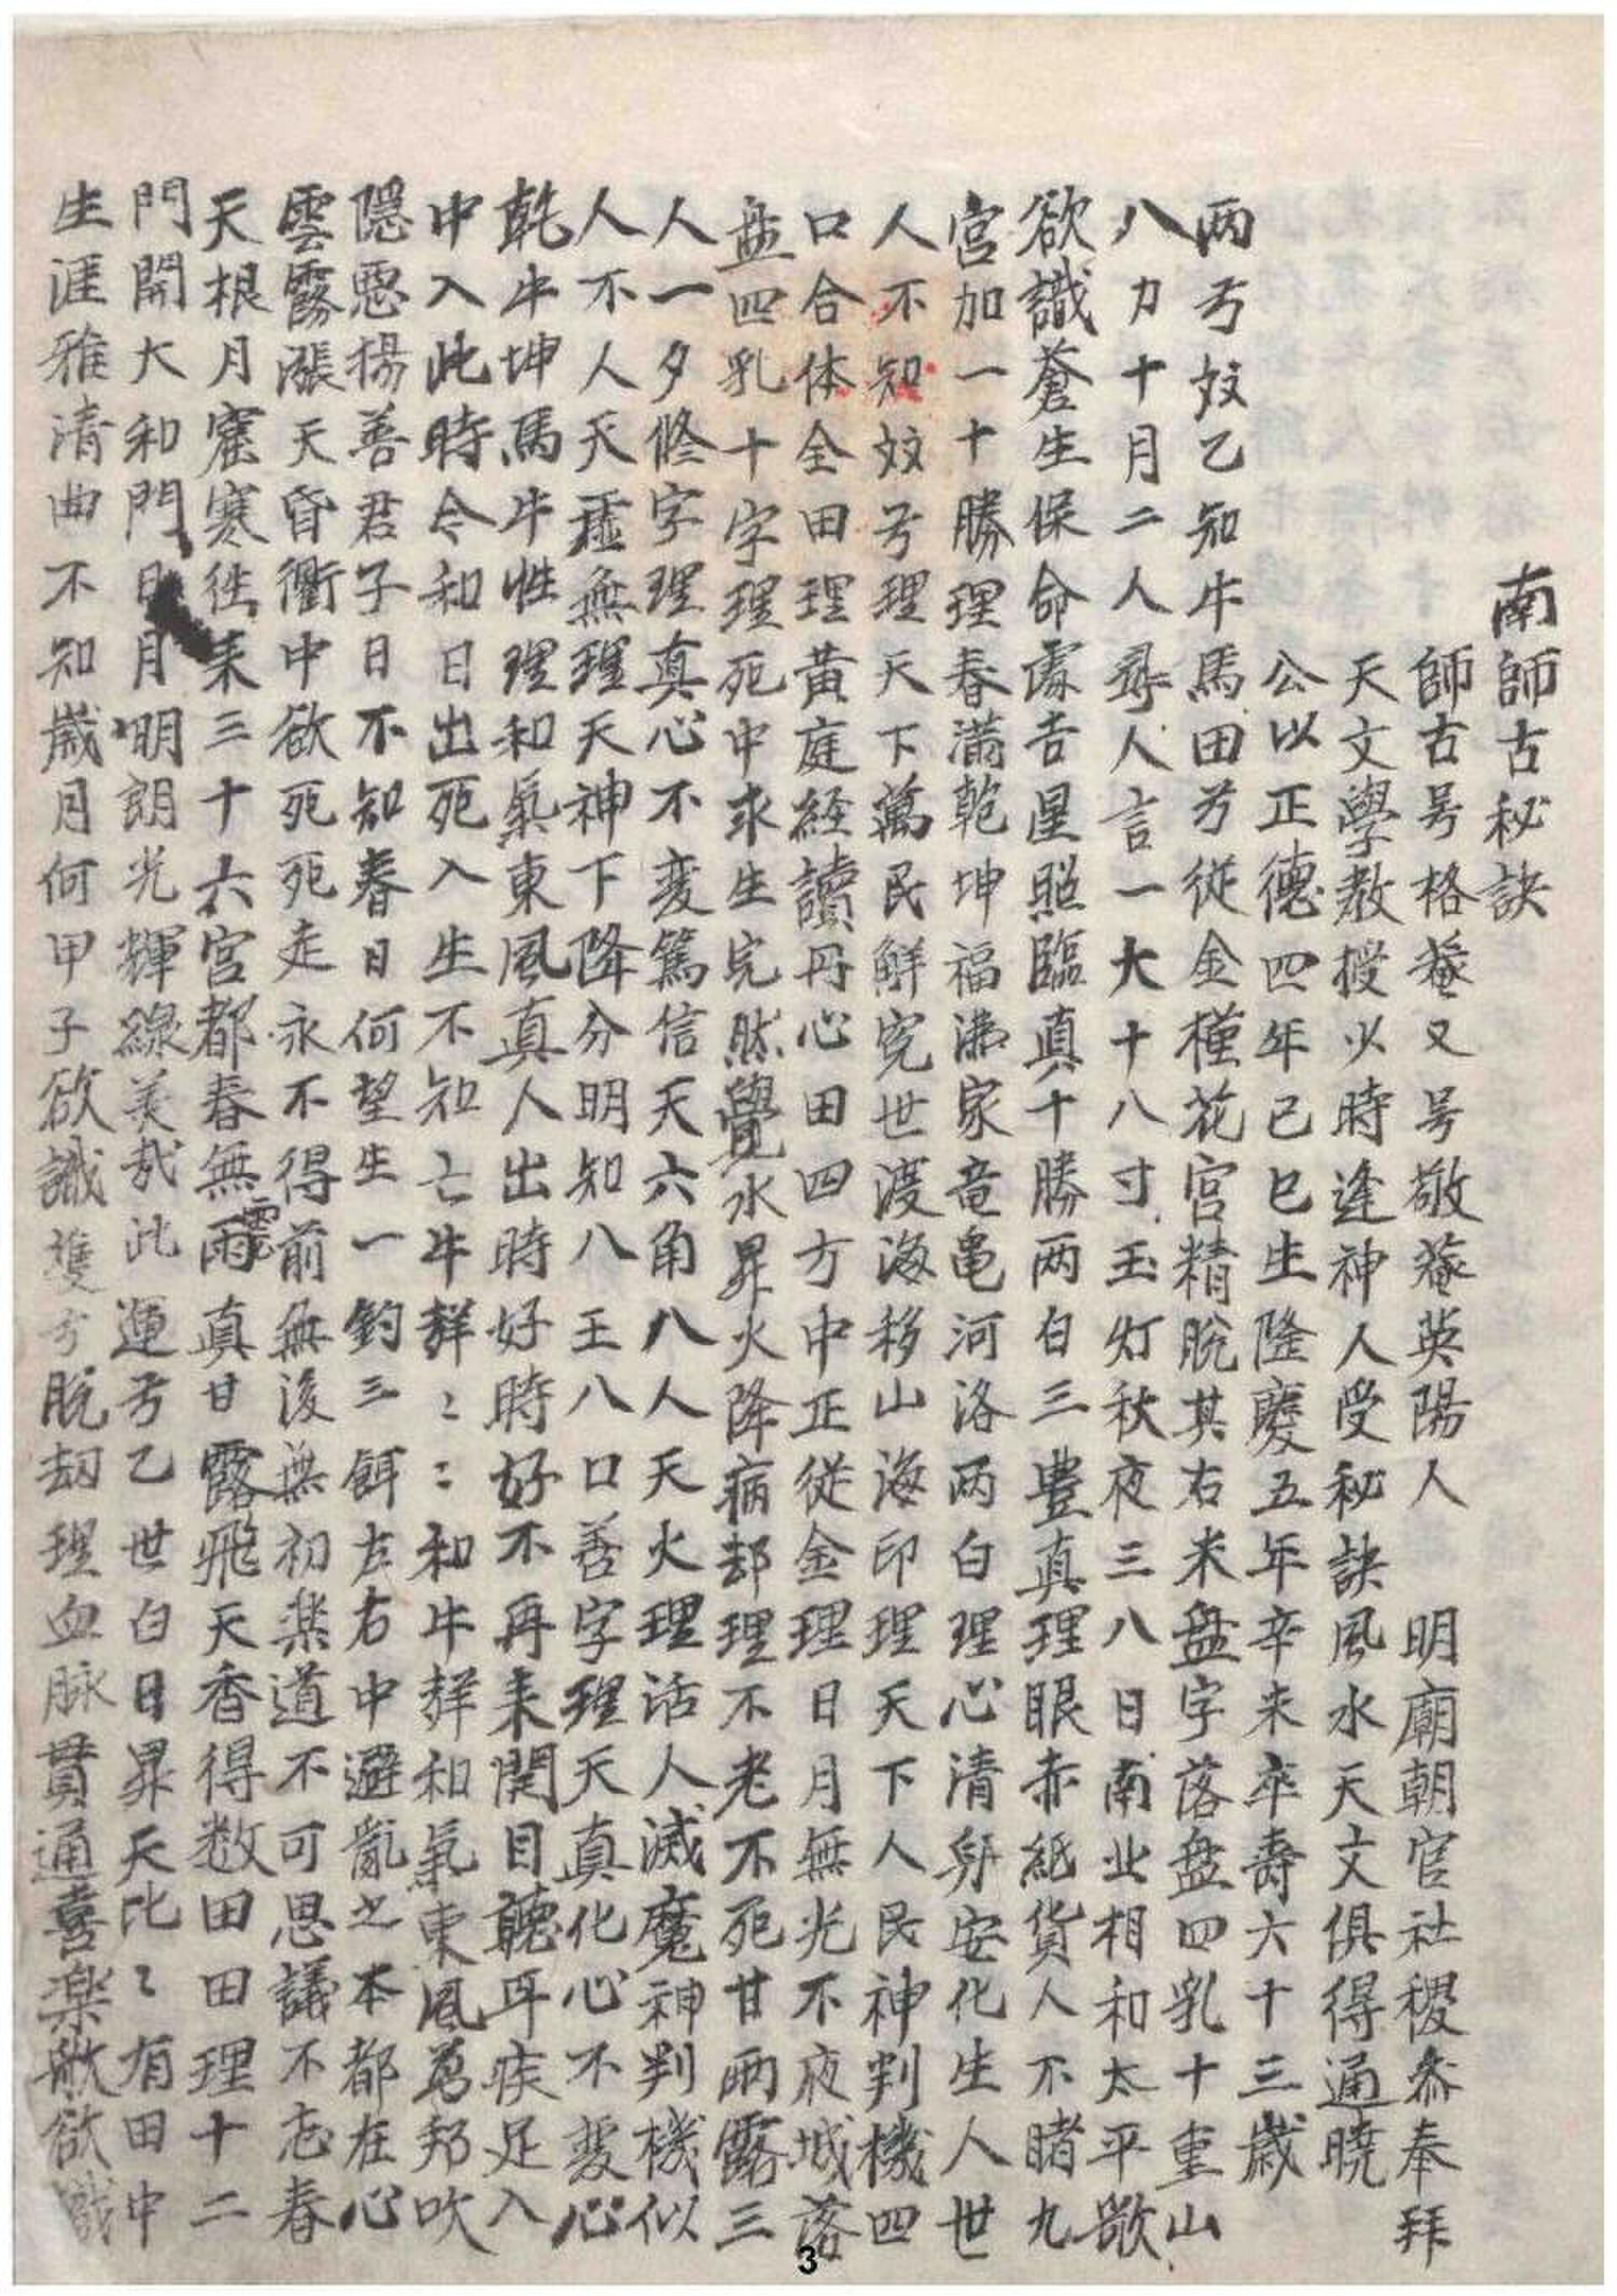 南師古秘訣
師古号格菴又号敬菴英陽人　明廟朝官社稷叅奉拜
天文學教授少時逢神人受秘訣風水天文俱得通曉
公以正德四年己巳生隆慶五年辛未卒壽六十三歲
两弓双乙知牛馬田兮從金槿花宮精脫其右米盤字落盤四乳十重山
八力十月二人尋人言一大十八寸玉灯秋夜三八日南北相和太平歌
欲識蒼生保命處吉星照臨真十勝两白三豊真理眼赤紙貨人不睹九
宮加一十勝理春滿乾坤福满家竜亀河洛两白理心清身安化生人世
人不知双弓理天下萬民鮮究世渡海移山海印理天下人民神判機四
口合体全田理黃庭経讀丹心田四方中正從金理日月無光不夜城落
盘四乳十字理死中求生完然覺水昇火降病却理不老不死甘雨露三
人一夕修字理真心不変篤信天六角八人天火理活人滅魔神判機似
人不人天虛無理天神下降分明知八王八口善字理天真化心不変心
乾牛坤馬牛性理和氣東風真人出時好時好不再来開目聽耳疾足入
中入此時令和日出死入生不知亡牛群ミミ和牛群和氣東風萬邦吹
隠惡揚善君子日不知春日何望生一釣三餌左右中避亂之本都在心
雲霧漲天昏衢中欲死死走永不得前無後無初楽道不可思議不忘春
天根月窟寒徃来三十六宮都春無雲雨真甘露飛天香得数田田理十二
門開大和門日月明朗光輝線美哉此運兮乙世白日昇天比ミ有田中
生涯雅清曲不知歲月何甲子欲識雙兮脫刧理血脉貫通喜楽歌欲識